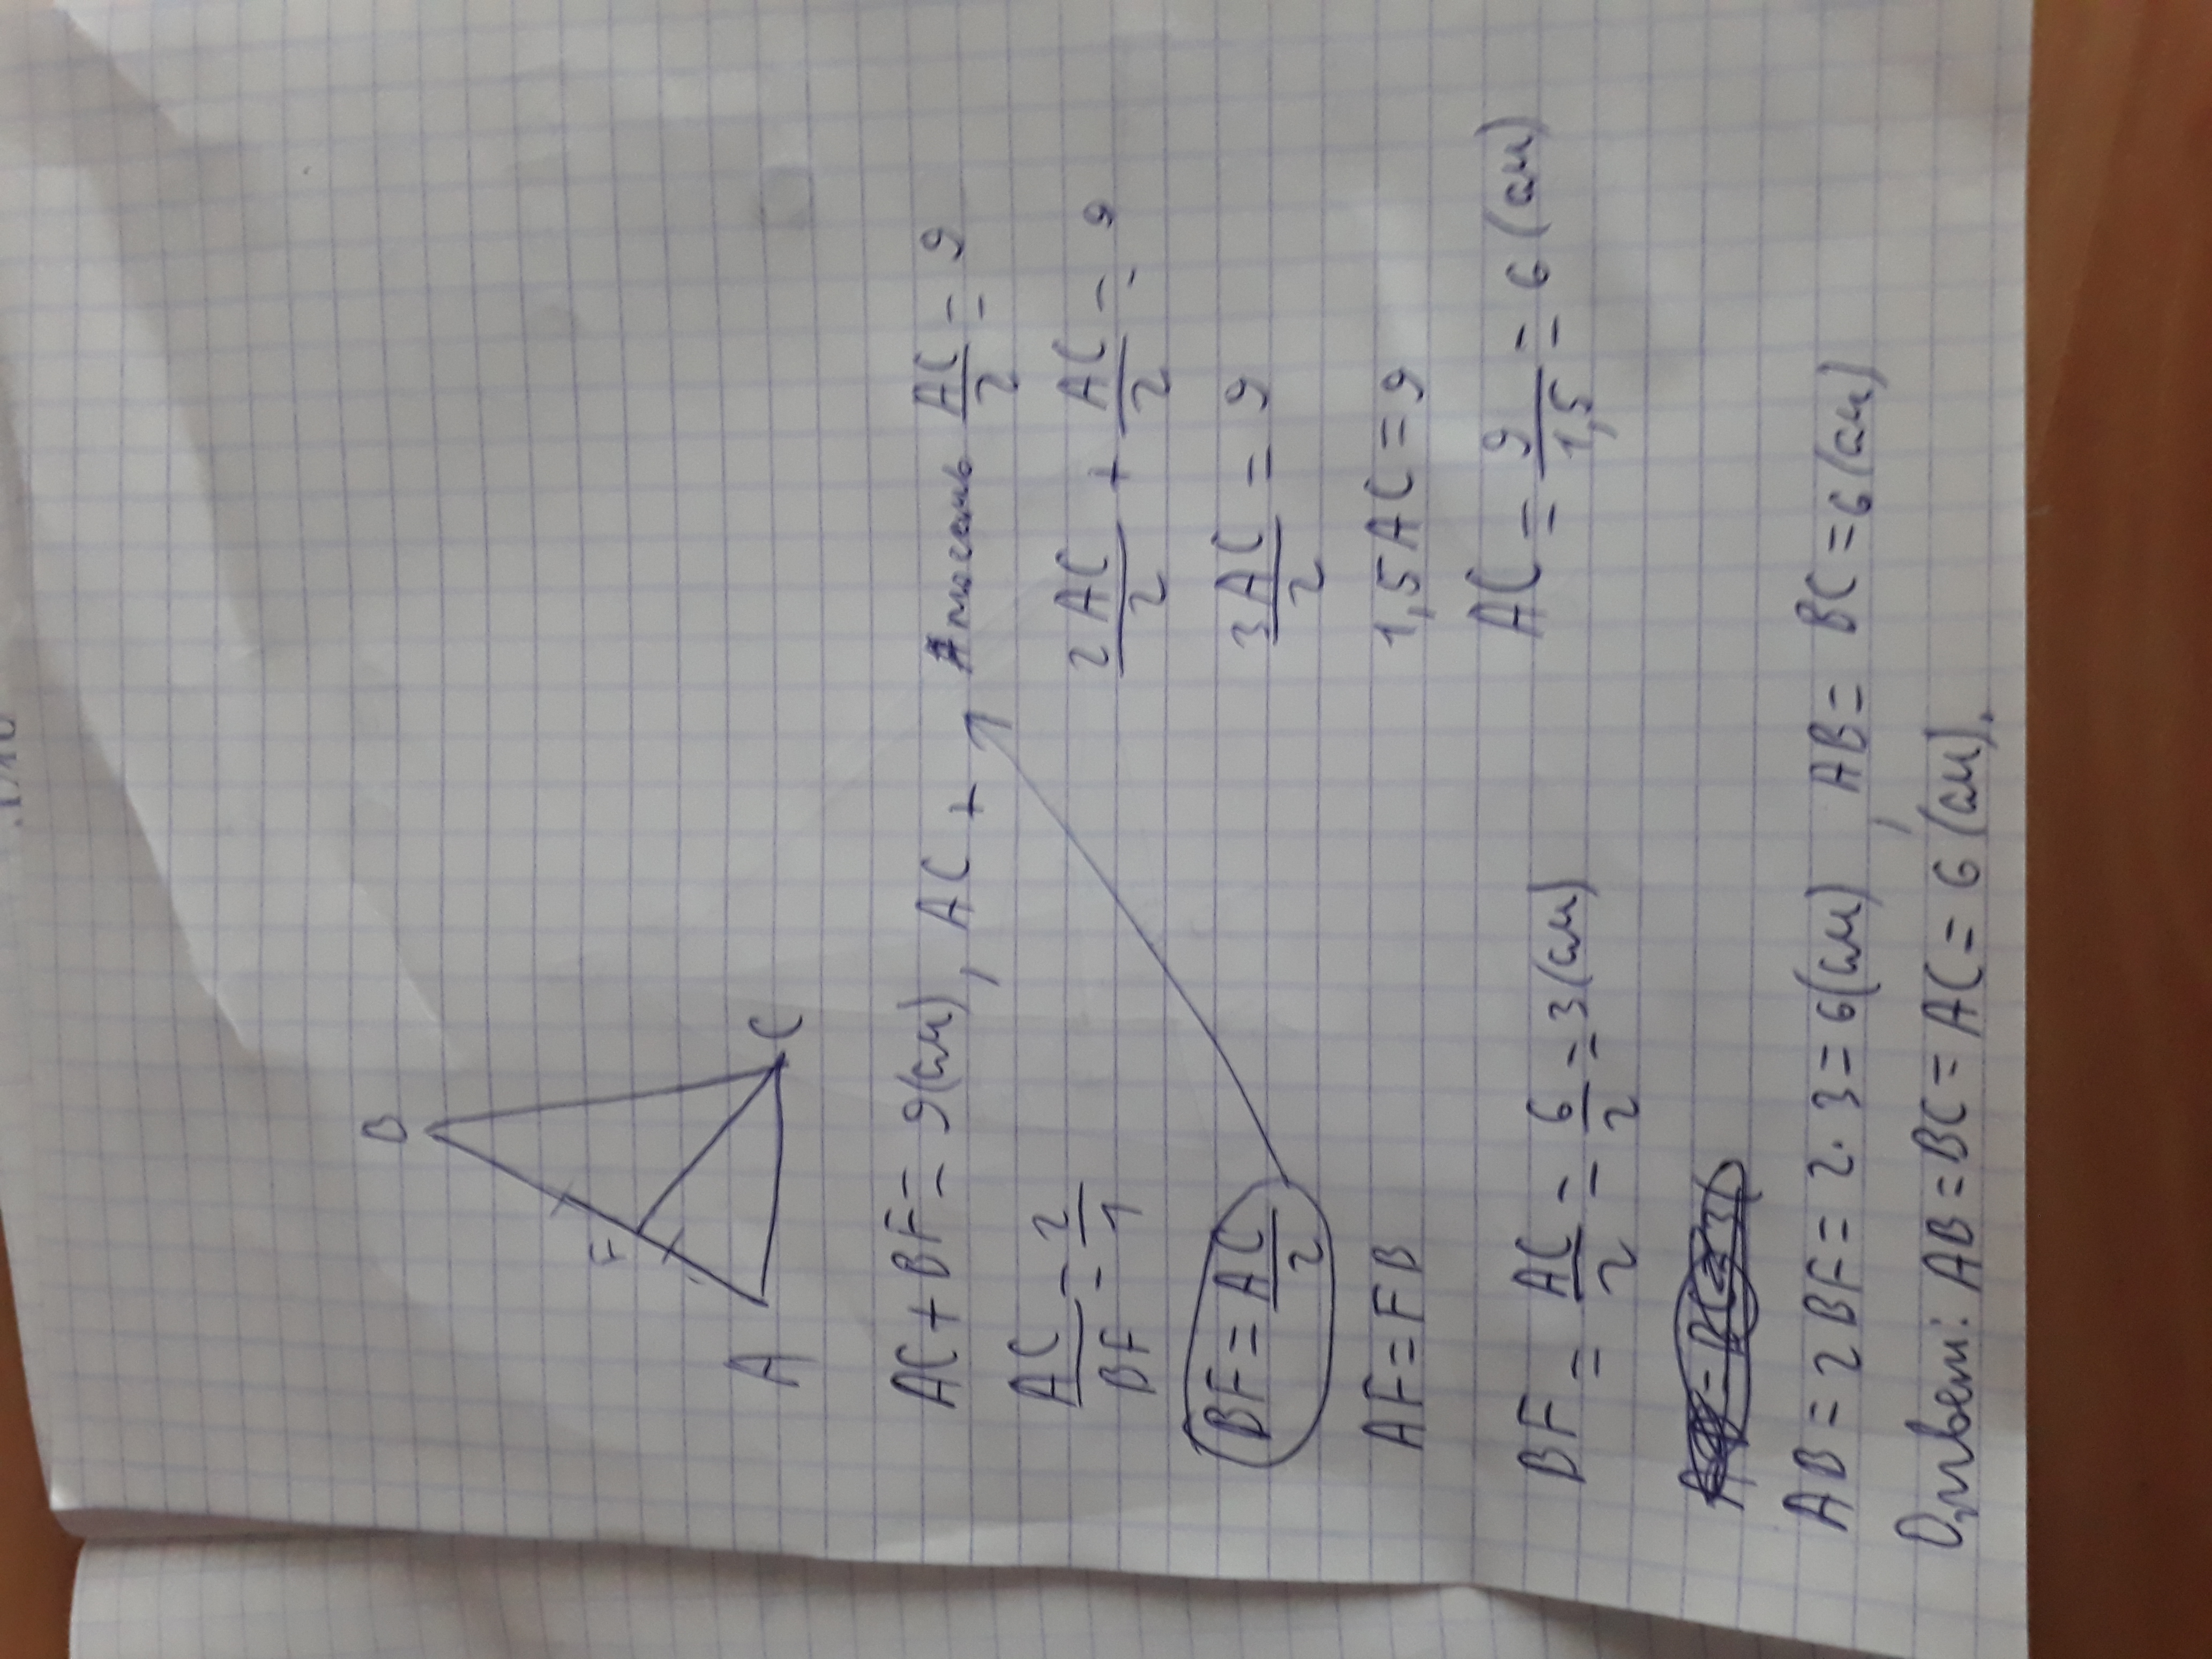 B
F
A
C
AC + BF = 9(см), AC + AC/2 = 9
AC/BF = 2/1
2AC/2 + AC/2 = 9
BF = AC/2
3AC/2 = 9
AF = FB
1,5AC = 9
BF = AC/2 = 6/2 = 3(см)
AC = 9/1,5 = 6(см)
AB = 2BF = 2·3 = 6(см), AB = BC = 6(см)
Ответ: AB = BC = AC = 6(см).